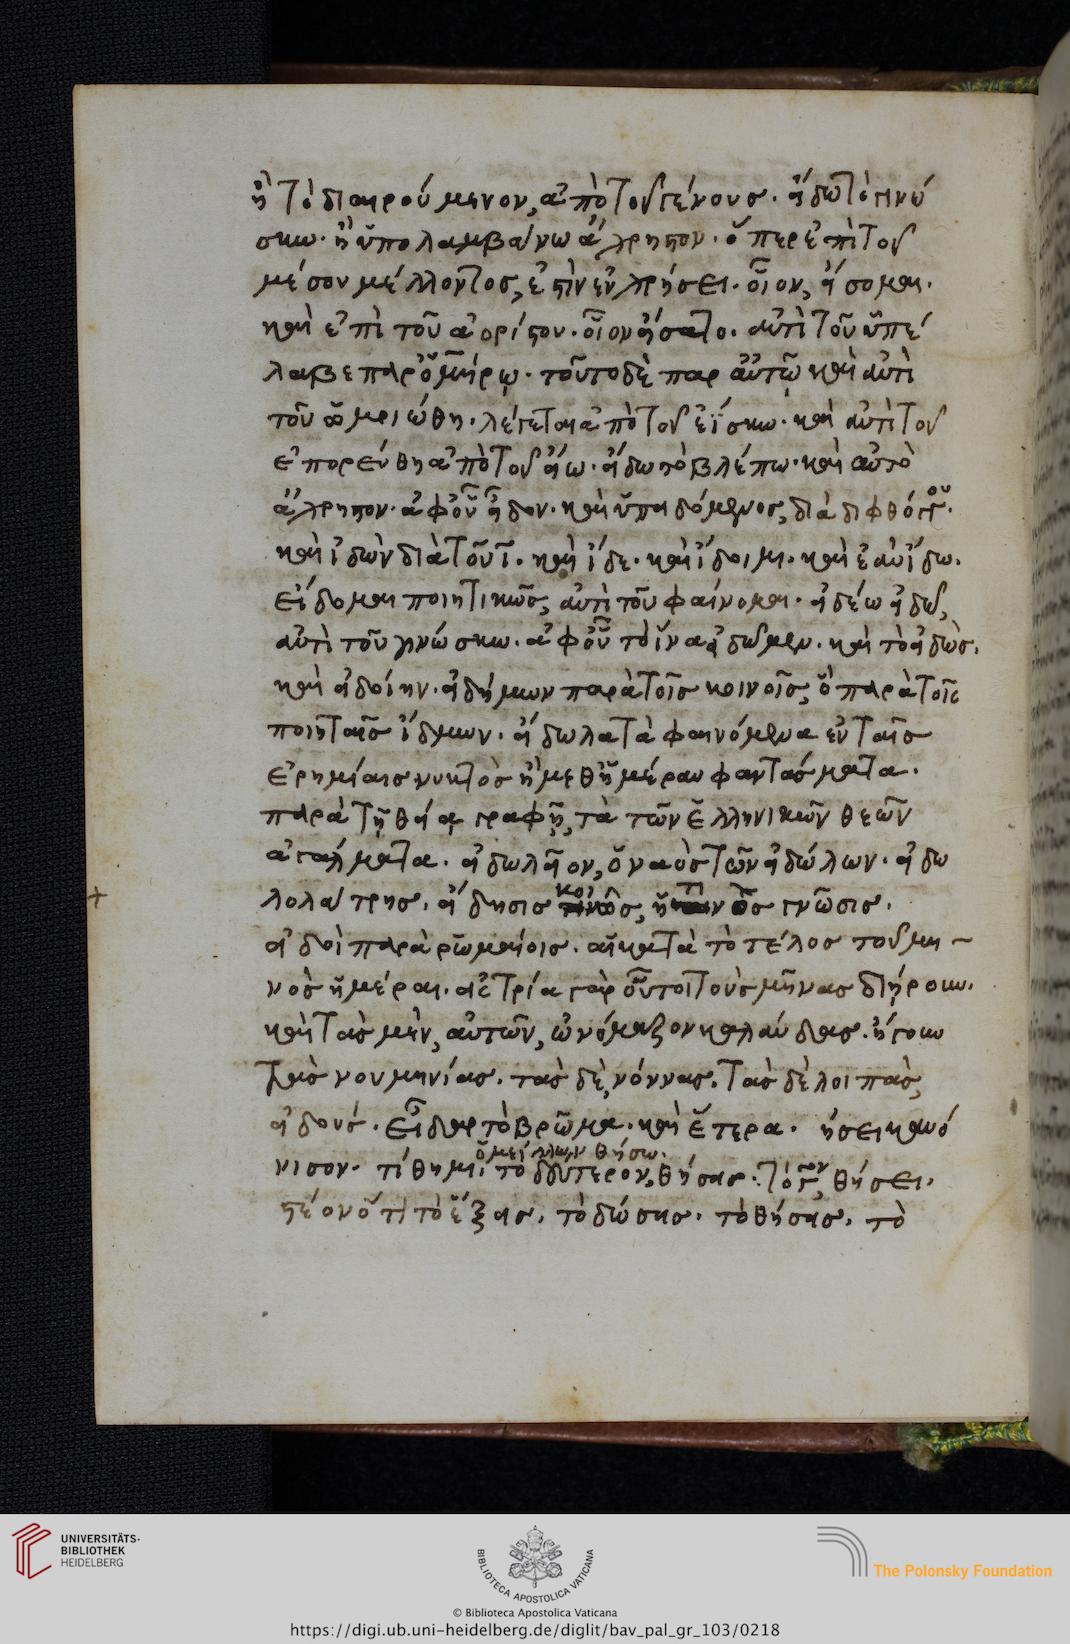 ἢ τὸ διαιρούμενον, ἀπὸ τοῦ γένους. εἴδω τὸ γινώ
σκω. ἢ ὑπολαμβάνω ἄχρηστον. ὅπερ ἐπὶ τοῦ
μέσου μέλλοντος, ἐστὶν ἐν χρήσει. οἷον, εἴσομαι.
καὶ ἐπὶ τοῦ ἀορίστου. οἷον εἴσατο. ἀντὶ τοῦ ὑπέ
λαβε παρ' ὁμήρῳ. τοῦτο δὲ παρ' αὐτῷ καὶ ἀντὶ
τοῦ ὡμοιώθη. λέγεται ἀπὸ τοῦ ἐΐσκω. καὶ ἀντὶ τοῦ
ἐπορεύθη ἀπὸ τοῦ εἴω. εἴδω τὸ βλέπω. καὶ αὐτὸ
ἄχρηστον. ἀφ' οὗ εἶδον. καὶ ὑπειδόμενος, διὰ διφθόγγου.
καὶ ἰδὼν διὰ τοῦ ι. καὶ ἴδε. καὶ ἴδοιμι. καὶ ἐὰν ἴδω.
εἴδομαι ποιητικῶς, ἀντὶ τοῦ φαίνομαι. εἰδέω εἰδῶ,
ἀντὶ τοῦ γινώσκω. ἀφ' οὗ τὸ ἵνα εἰδῶμεν. καὶ τὸ εἰδὼς.
καὶ εἰδοίην. εἰδήμων παρὰ τοῖς κοινοῖς, ὁ παρὰ τοῖς
ποιηταῖς ἴδμων. εἴδωλα τὰ φαινόμενα ἐν ταῖς
ἐρημίαις νυκτὸς ἢ μεθ' ἡμέραν φαντάσματα.
παρὰ τῇ θείᾳ γραφῇ, τὰ τῶν ἑλληνικῶν θεῶν
ἀγάλματα. εἰδωλεῖον, ὁ ναὸς τῶν εἰδώλων. εἰδω
λολάτρης. εἴδησις κοινῶς, ἥ τινος γνῶσις.
εἰδοὶ παρὰ ῥωμαίοις. αἱ κατὰ τὸ τέλος τοῦ μη
νὸς ἡμέραι. εἰς τρία γὰρ οὗτοι τοὺς μῆνας διῄρουν.
καὶ τὰς μὲν, αὐτῶν, ὠνόμαζον καλάνδας. ἤγουν
τὰς νουμηνίας. τὰς δὲ, νόννας. τὰς δὲ λοιπὰς,
εἰδούς. εἶδαρ τὸ βρῶμα. καὶ ἕτερα.
νισον. τίθημι. ὁ μέλλων θήσω. τὸ δεύτερον, θήσεις. τὸ γον, θήσει.
στέον ὅτι τὸ ἕξεις. τὸ δώσεις. τὸ θήσεις. τὸ
UNIVERSITÄTS-
BIBLIOTHEK
HEIDELBERG
BIBLIOTECA APOSTOLICA VATICANA
The Polonsky Foundation
© Biblioteca Apostolica Vaticana
https://digi.ub.uni-heidelberg.de/diglit/bav_pal_gr_103/0218